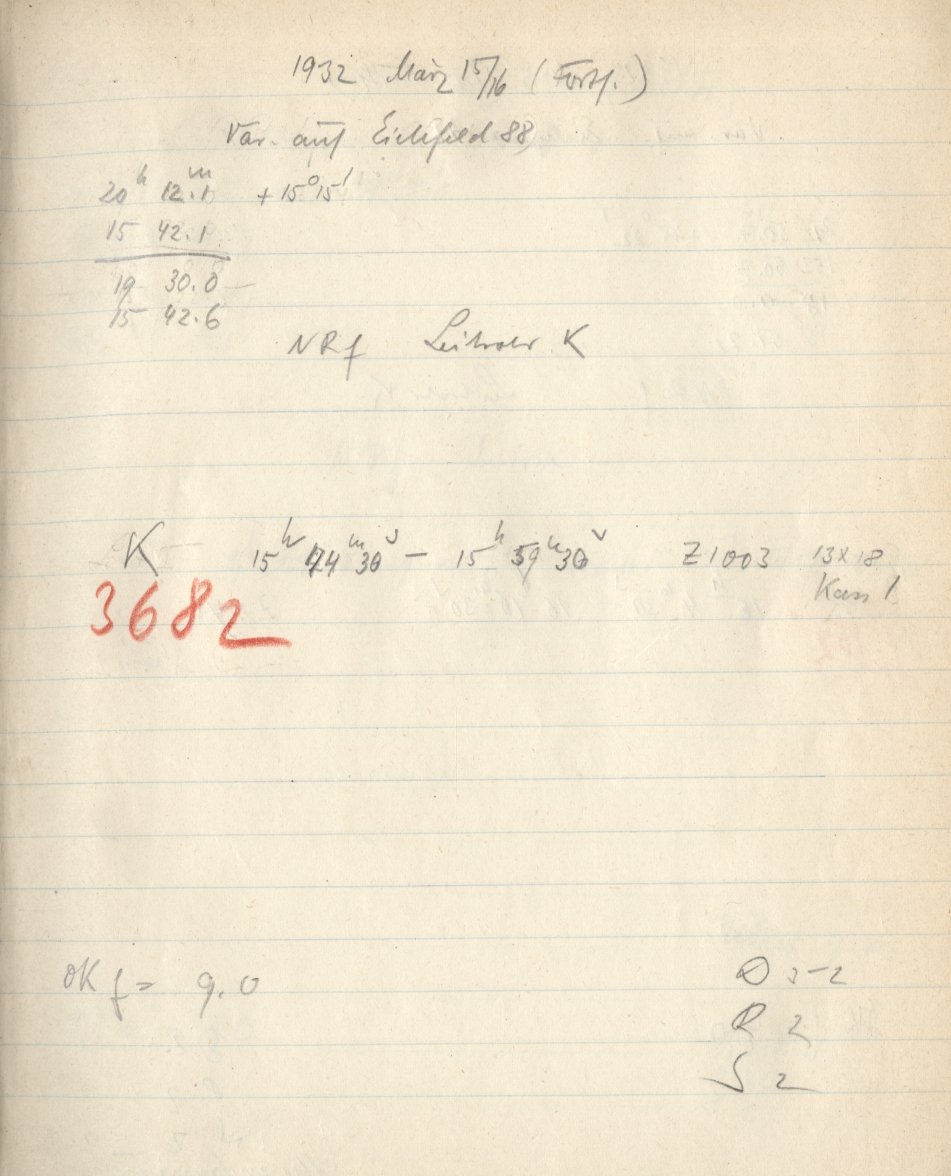 1932 März 15/16 (Fortf.)
Var. auf Eichfeld 88
20ʰ 12.1ᵐ +15°15'
15 42.1
19 30.0
15 42.6
NRf Leitrohr K
K 15ʰ 44ᵐ 30ˢ – 15ʰ 59ᵐ 30ˢ Z1003 13x18
Kass 1
3682
OKf = 9.0 D 3-2
R 2
S 2